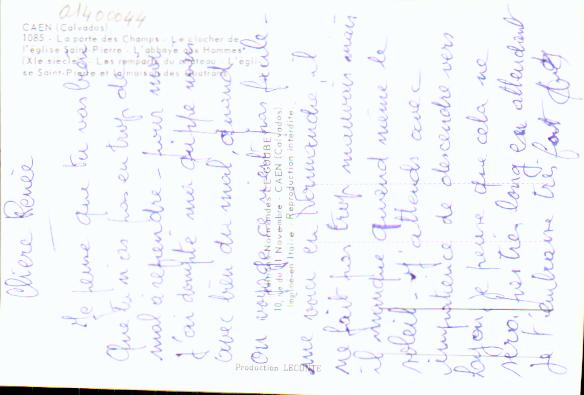 01400044
CAEN (Calvados)
1085 - La porte des Champs - Le clocher de
l'église Saint-Pierre - L'abbaye aux Hommes
(XIe siècle) - Les remparts du château - L'égli-
se Saint-Pierre et la maison des Quatrans
Chère Renée
Je pense que tu vas bien
que tu n'as pas eu trop de
mal à reprendre - pour moi
j'ai dompté ma grippe mais
avec bien du mal, quand
on voyage ce n'est pas facile -
me voici en Normandie, il
ne fait pas trop mauvais mais
il manque quand même le
soleil - J'attends avec
impatience de descendre vers
Lyon, je pense que cela ne
sera pas très long en attendant
je t'embrasse très fort
10, rue du 11 Novembre CAEN (Calvados)
Imprimé en Italie Reproduction interdite
Production LECONTE